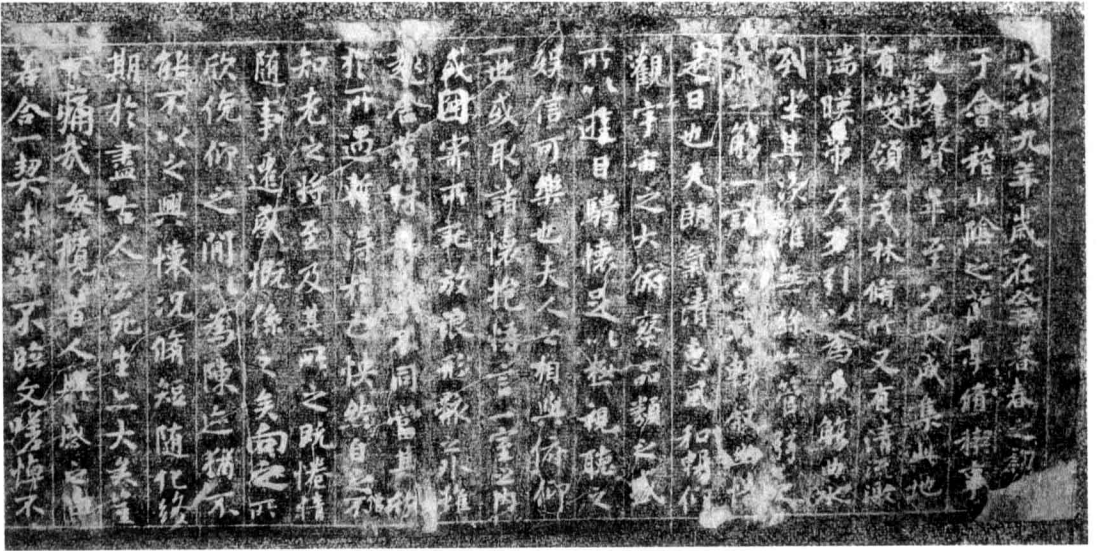 永和九年歲在癸丑暮春之初會
于會稽山陰之蘭亭脩稧事
也羣賢畢至少長咸集此地
有峻領茂林脩竹又有清流激
湍暎帶左右引以為流觴曲水
列坐其次雖無絲竹管絃之
一觴一詠 暢敘幽情
是日也天朗氣清惠風和暢仰
觀宇宙之大俯察品類之盛
所以遊目騁懷足以極視聽之
娛信可樂也夫人之相與俯仰
一世或取諸懷抱悟言一室之內
或因寄所託放浪形骸之外雖
趣舍萬殊 不同當其欣
於所遇暫得於己怏然自足不
知老之將至及其所之既惓情
隨事遷感慨係之矣向之所
欣俛仰之閒以為陳迹猶不
能不以之興懷況脩短隨化終
期於盡古人云死生亦大矣豈
不痛哉每攬昔人興感之由
若合一契未嘗不臨文嗟悼不